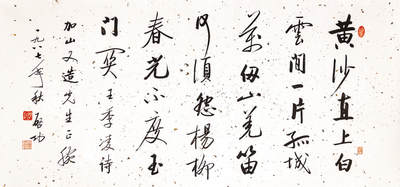 黄沙直上白
雲间一片孤城
萬仞山羌笛
何須怨楊柳
春光不度玉
门関王季凌诗
加山又造先生正腕
一九八七年秋启功